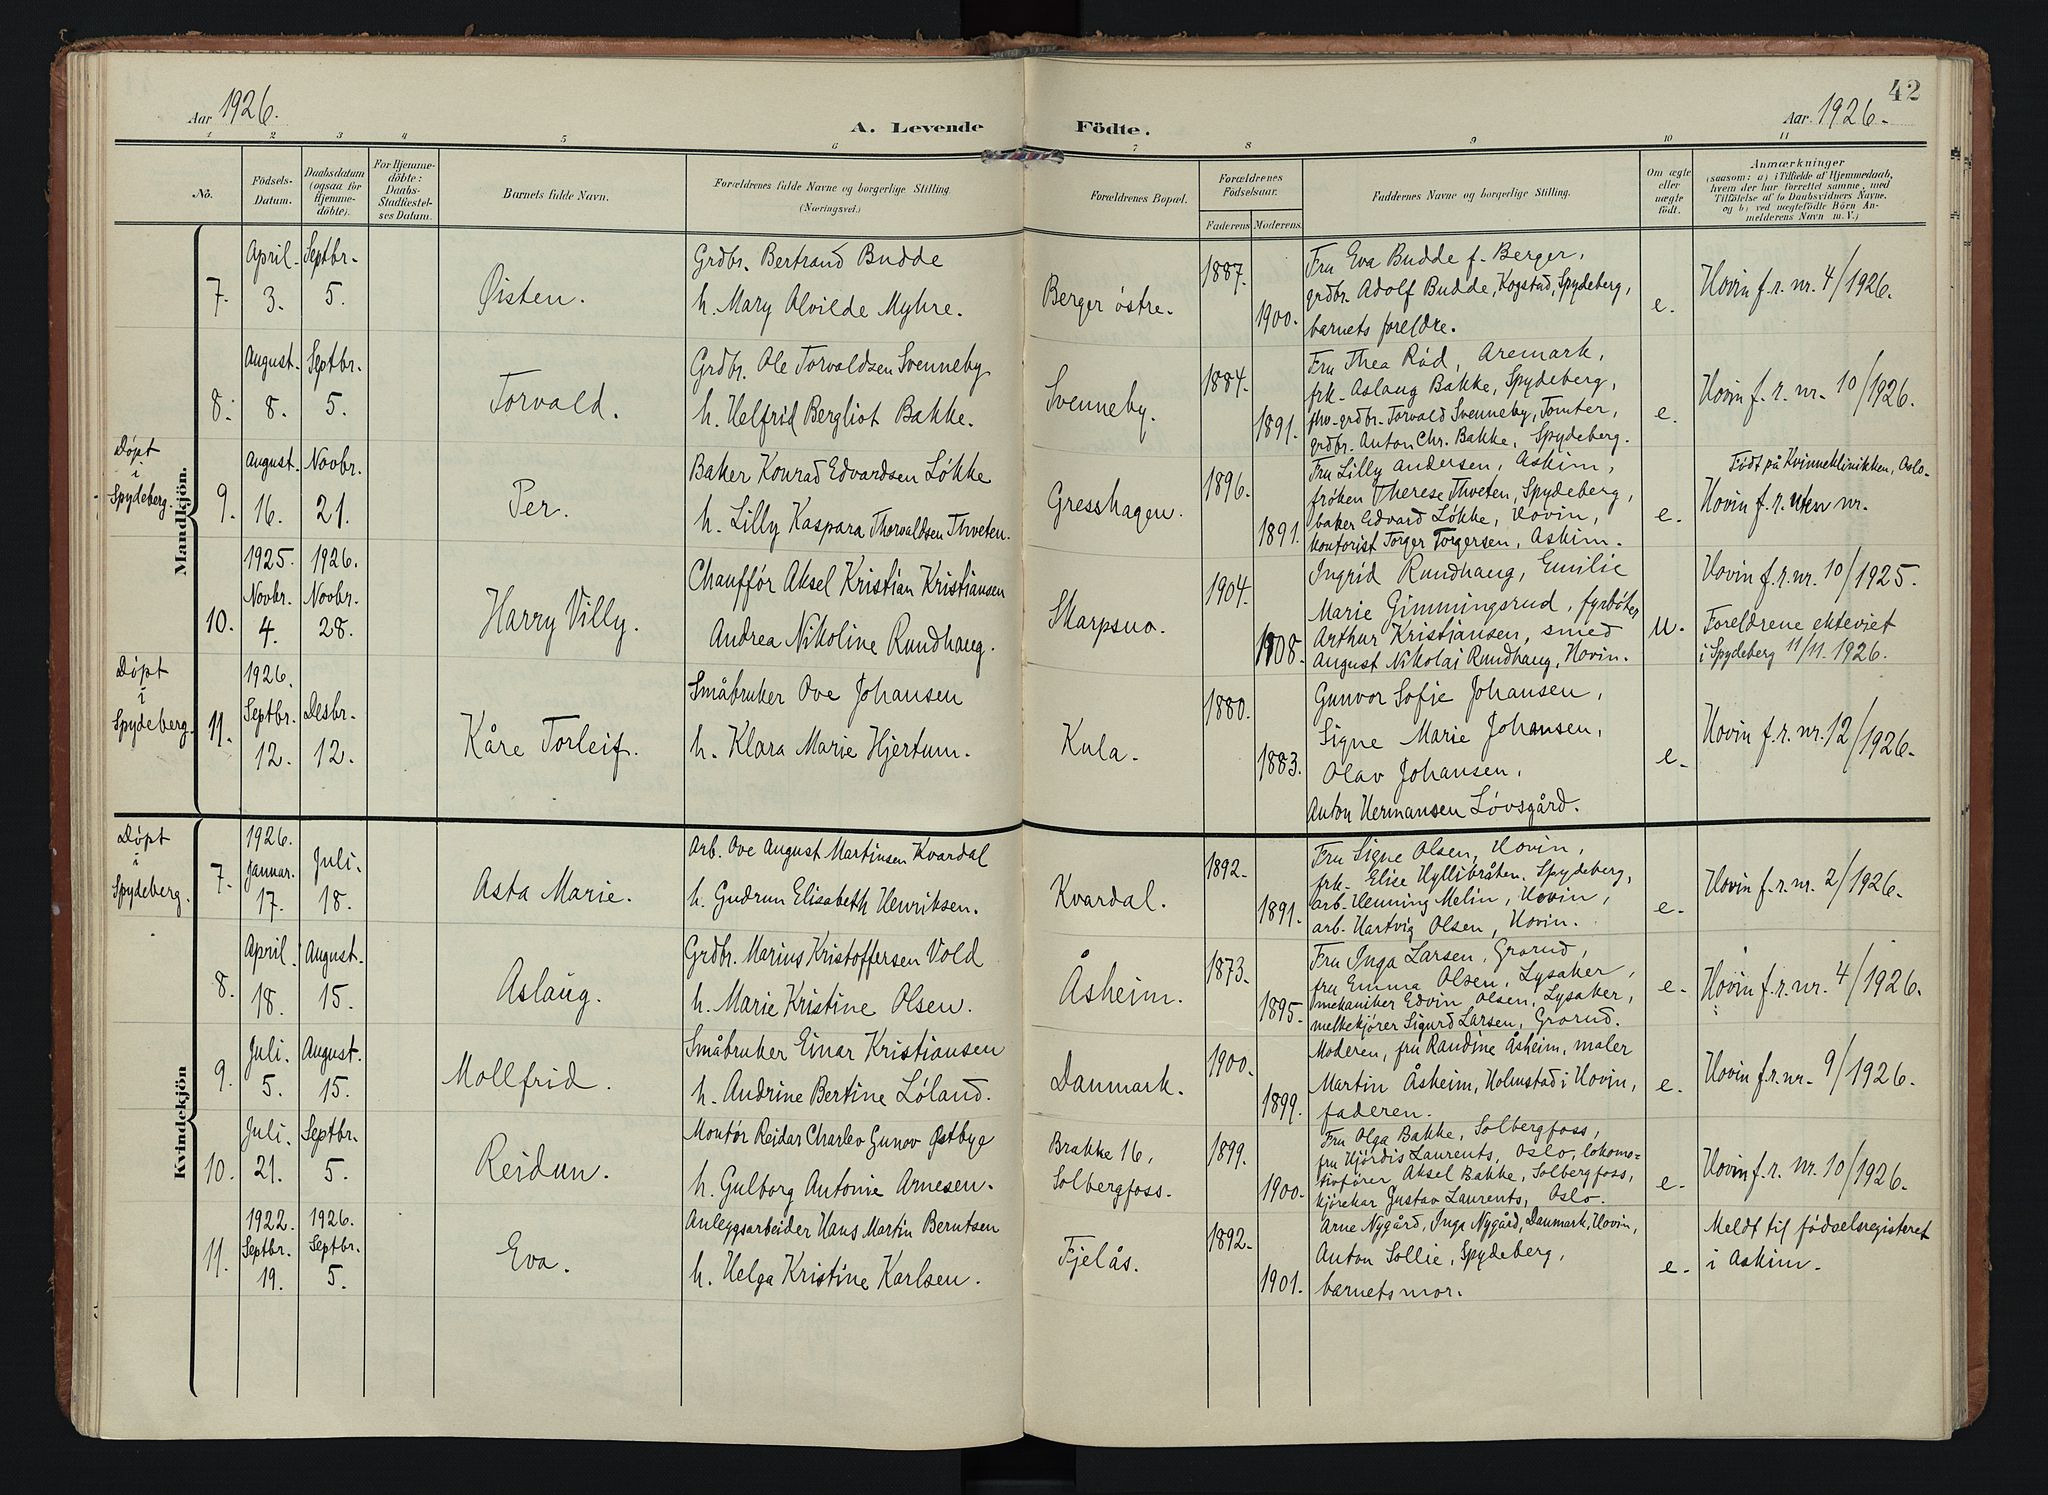 42
Aar 1926.
Aar. 1926.
A. Levende Födte.
1 2 3 4 5 6 7 8 9 10 11
No.
Födsels-
Datum.
Daabsdatum
(ogsaa for
Hjemme-
döbte).
For Hjemme-
döbte:
Daabs-
Stadfæstel-
ses Datum.
Barnets fulde Navn.
Forældrenes fulde Navne og borgerlige Stilling
(Næringsvei.)
Forældrenes Bopæl.
Forældrenes
Födselsaar.
Faderens. Moderens.
Faddernes Navne og borgerlige Stilling.
Om ægte
eller
uægte
født.
Anmærkninger
(saasom: a) i Tilfælde af Hjemmedaab,
hvem der har forrettet samme, med
Tilföielse af to Daabsvidners Navne,
og b) ved uægtefödte Börn An-
melderens Navn m. V.)
Mandkjön.
7.
April.
3.
Septbr.
5.
Øisten.
Grdbr. Bertrand Budde
h. Mary Alvilde Myhre.
Berger östre.
1887.
1900.
Fru Eva Budde f. Berger,
grdbr. Adolf Budde, Kogstad, Spydeberg,
barnets foreldre.
e.
Hovin f.r. nr. 4/1926.
8.
August.
8.
Septbr.
5.
Torvald.
Grdbr. Ole Torvaldsen Svenneby
h. Helfrid Bergliot Bakke.
Svenneby.
1884.
1891.
Fru Thea Röd, Aremark,
frk. Aslaug Bakke, Spydeberg,
fhv. grdbr. Torvald Svenneby, Tomter,
grdbr. Anton Chr. Bakke, Spydeberg.
e.
Hovin f. r. nr. 10/1926.
Døpt
i
Spydeberg.
9.
August.
16.
Novbr.
21.
Per.
Baker Konrad Edvardsen Løkke
h. Lilly Kaspara Thorvaldsen Thveten.
Gresshagen.
1896.
1891.
Fru Lilly Andersen, Askim,
frøken Therese Thveten, Spydeberg,
baker Edvard Løkke, Hovin,
kontorist Torger Torgersen, Askim.
e.
Født på Kvinneklinikken, Oslo.
Hovin f.r. uten nr.
10.
1925.
Novbr.
4.
1926.
Novbr.
28.
Harry Villy.
Chauffør Aksel Kristian Kristiansen
Andrea Nikoline Rundhaug.
Skarpsno.
1904.
1908.
Ingrid Rundhaug, Emilie
Marie Gimmingsrud, fyrbøter
Arthur Kristiansen, smed
August Nikolai Rundhaug, Hovin.
u.
Hovin f.r. nr. 10/1925.
Foreldrene ekteviet
i Spydeberg 11/11. 1926.
Døpt
i
Spydeberg.
11.
1926.
Septbr.
12.
Desbr.
12.
Kåre Torleif.
Småbruker Ove Johansen
h. Klara Marie Hjertum.
Kula.
1880.
1883.
Gunvor Sofie Johansen,
Signe Marie Johansen,
Olav Johansen,
Anton Hermansen Løvsgård.
e.
Hovin f.r. nr. 12/1926.
Kvindekjön
Døpt
i
Spydeberg.
7.
1926.
Januar.
17.
Juli.
18.
Asta Marie.
Arb. Ove August Martinsen Kvardal
h. Gudrun Elisabeth Henriksen.
Kvardal.
1892.
1891.
Fru Signe Olsen, Hovin,
frk. Elise Hyllibråten, Spydeberg,
arb. Henning Melin, Hovin,
arb. Hartvig Olsen, Hovin.
e.
Hovin f.r. nr. 2/1926.
8.
April.
18.
August.
15.
Aslaug.
Grdbr. Marius Kristoffersen Vold
h. Marie Kristine Olsen.
Åsheim.
1873.
1895.
Fru Inga Larsen, Grorud,
fru Emma Olsen, Lysaker,
mekaniker Edvin Olsen, Lysaker,
melkekjører Sigurd Larsen, Grorud.
e.
Hovin f.r. nr. 4/1926.
9.
Juli.
5.
August.
15.
Mollfrid.
Småbruker Einar Kristiansen
h. Andrine Bertine Løland.
Danmark.
1900.
1899.
Moderen, fru Randine Åsheim, maler
Martin Åsheim, Holmstad i Hovin,
faderen.
e.
Hovin f.r. nr. 9/1926.
10.
Juli.
21.
Septbr.
5.
Reidun.
Montør Reidar Charlev Gunov Østbye
h. Gulborg Antonie Arnesen.
Brakke 16,
Solbergfoss.
1899.
1900.
Fru Olga Bakke, Solbergfoss,
fru Hjördis Laurents, Oslo, lokomo=
tivfører Aksel Bakke, Solbergfoss,
kjørekar Gustav Laurents, Oslo.
e.
Hovin f. r. nr. 10/1926.
11.
1922.
Septbr.
19.
1926.
Septbr.
5.
Eva.
Anleggsarbeider Hans Martin Berntsen
h. Helga Kristine Karlsen.
Fjelås.
1892.
1901.
Arne Nygård, Inga Nygård, Danmark, Hovin,
Anton Sollie, Spydeberg,
barnets mor.
e.
Meldt til fødselsregisteret
i Askim.